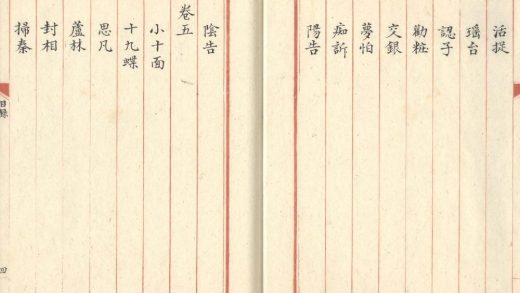 活捉
瑤台
認子
勸粧
交銀
夢怕
痴訴
陽告
陰告
卷五
小十面
十九蝶
思凡
蘆林
封相
掃秦
目錄
四